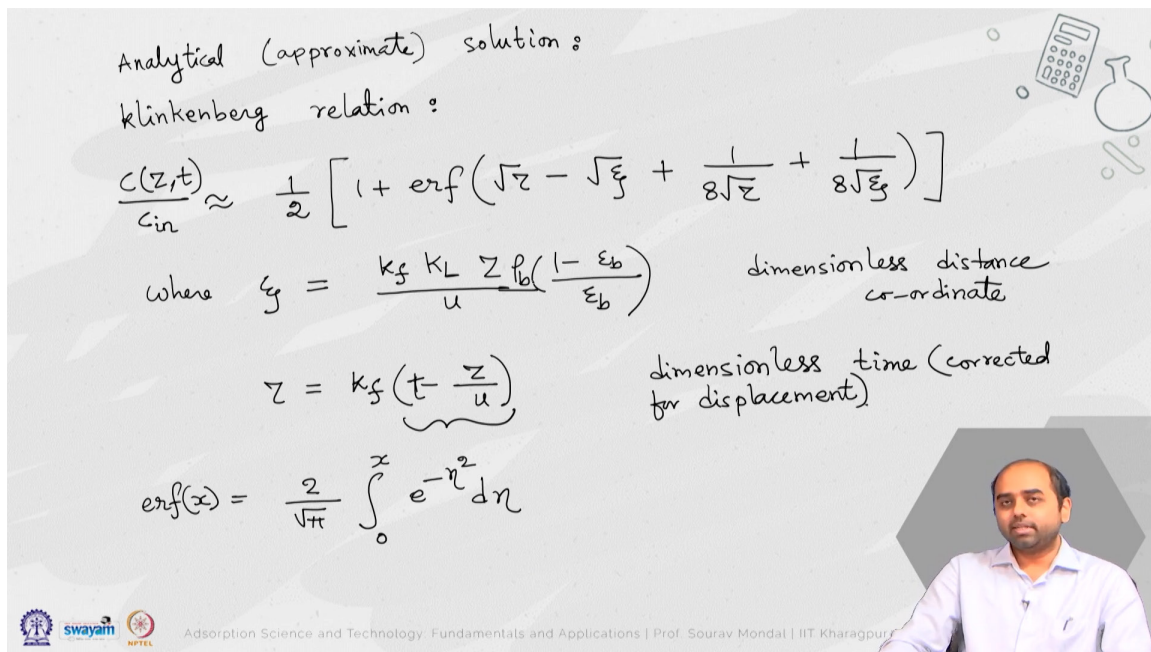 Analytical (approximate) solution :
Klinkenberg relation :
C(z,t)/Cin ≈ 1/2 [1 + erf(√τ − √ξ + 1/(8√τ) + 1/(8√ξ))]
where ξ = (kf KL z ρb / u) ((1 − εb)/εb) dimensionless distance co-ordinate
τ = kf (t − z/u) dimensionless time (corrected for displacement).
erf(x) = 2/√π ∫₀ˣ e^(−η²) dη
swayam
NPTEL
Adsorption Science and Technology: Fundamentals and Applications | Prof. Sourav Mondal | IIT Kharagpur